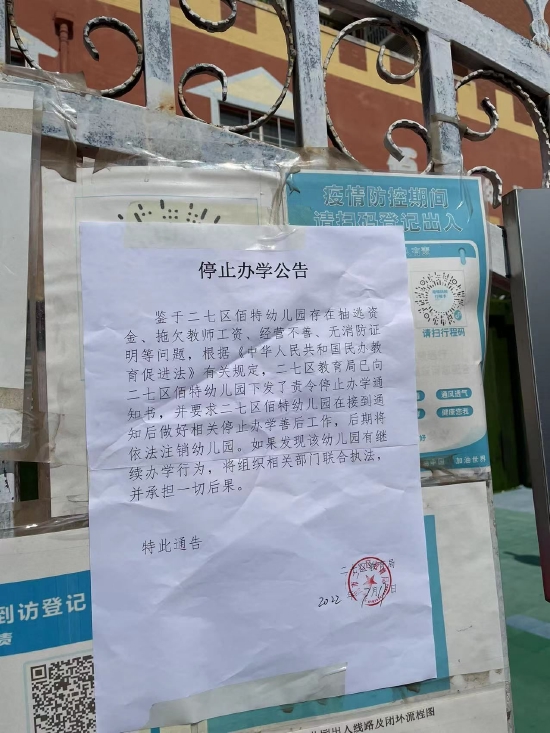 疫情防控期间
请扫码登记出入
请扫行程码
通风透气
健康您我
停止办学公告
鉴于二七区佰特幼儿园存在抽逃资
金、拖欠教师工资、经营不善、无消防证
明等问题，根据《中华人民共和国民办教
育促进法》有关规定，二七区教育局已向
二七区佰特幼儿园下发了责令停止办学通
知书，并要求二七区佰特幼儿园在接到通
知后做好相关停止办学善后工作，后期将
依法注销幼儿园。如果发现该幼儿园有继
续办学行为，将组织相关部门联合执法，
并承担一切后果。
特此通告
2022
到访登记
出入线路及闭环流程图